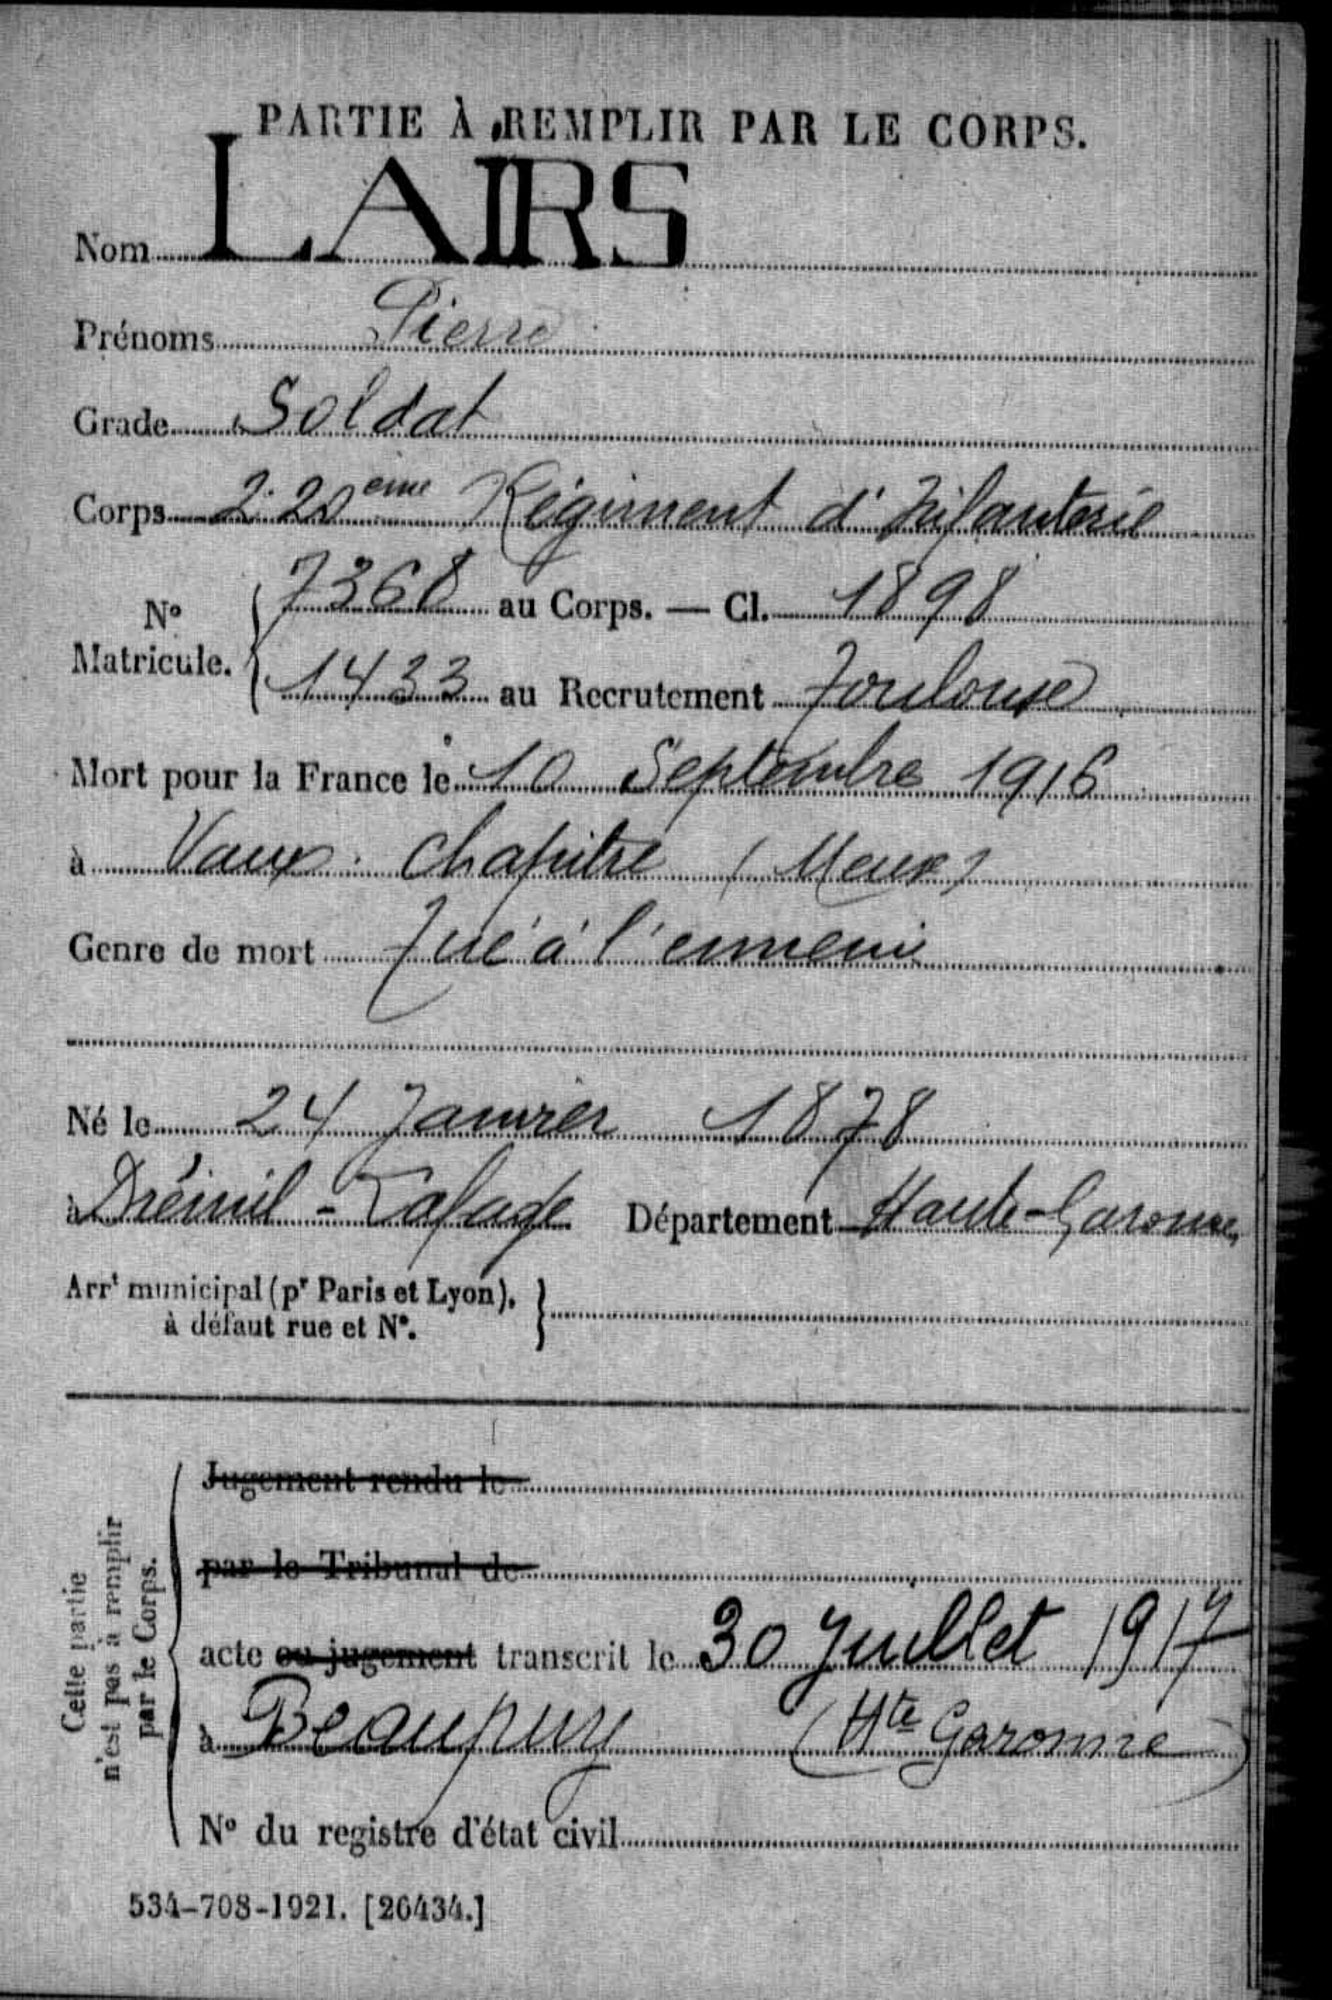 PARTIE À REMPLIR PAR LE CORPS.
Nom LAIRS
Prénoms Pierre
Grade Soldat
Corps 220eme Régiment d'Infanterie
N° Matricule. { 7368 au Corps. — Cl. 1898
1433 au Recrutement Toulouse
Mort pour la France le 10 Septembre 1916
à Vaux Chapitre (Meuse)
Genre de mort Tué à l'ennemi
Né le 24 Janvier 1878
à Drémil-Lafage Département Haute-Garonne,
Arrt municipal (pr Paris et Lyon),
à défaut rue et N°.
Cette partie n'est pas à remplir par le Corps.
Jugement rendu le
par le Tribunal de
acte ou jugement transcrit le 30 Juillet 1917
à Beaupuy (Hte Garonne)
N° du registre d'état civil
534-708-1921. [26434.]